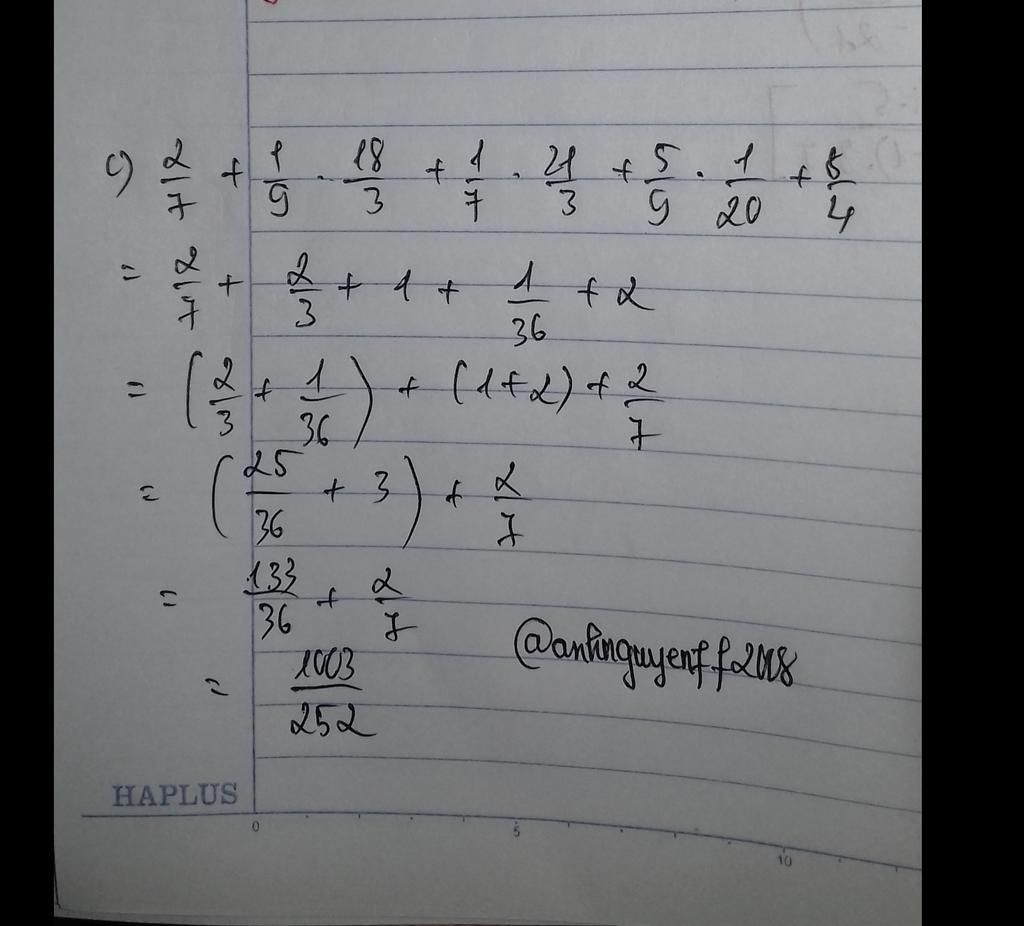 c) 2/7 + 1/9 . 18/3 + 1/7 . 21/3 + 5/9 . 1/20 + 8/4
= 2/7 + 2/3 + 1 + 1/36 + 2
= (2/3 + 1/36) + (1+2) + 2/7
= (25/36 + 3) + 2/7
= 133/36 + 2/7
= 1003/252
@anhnguyenff2008
HAPLUS
0 5 10